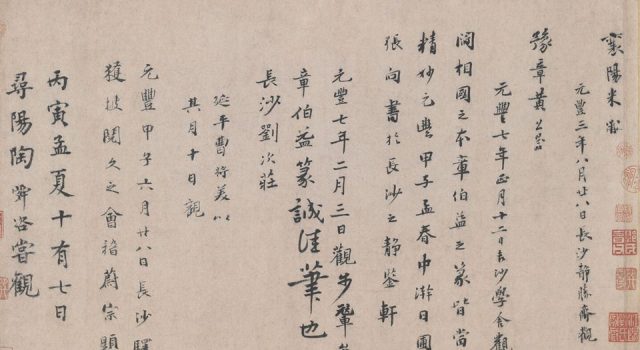 襄陽米黻
元豐三年八月廿八日長沙靜勝齋觀
豫章黃公器
元豐七年正月十二日長沙學舍觀
閻相國之本章伯益之篆皆當
精妙元豐甲子孟春中澣日圃
張向書於長沙之靜鑒軒
元豐七年二月三日觀步輦
章伯益篆誠佳筆也
長沙劉次莊
延平曹將美以
其月十日觀
元豐甲子六月廿八日長沙驛
獲披閱久之會稽蔚宗題
丙寅孟夏十有七日
尋陽陶舜咨嘗觀